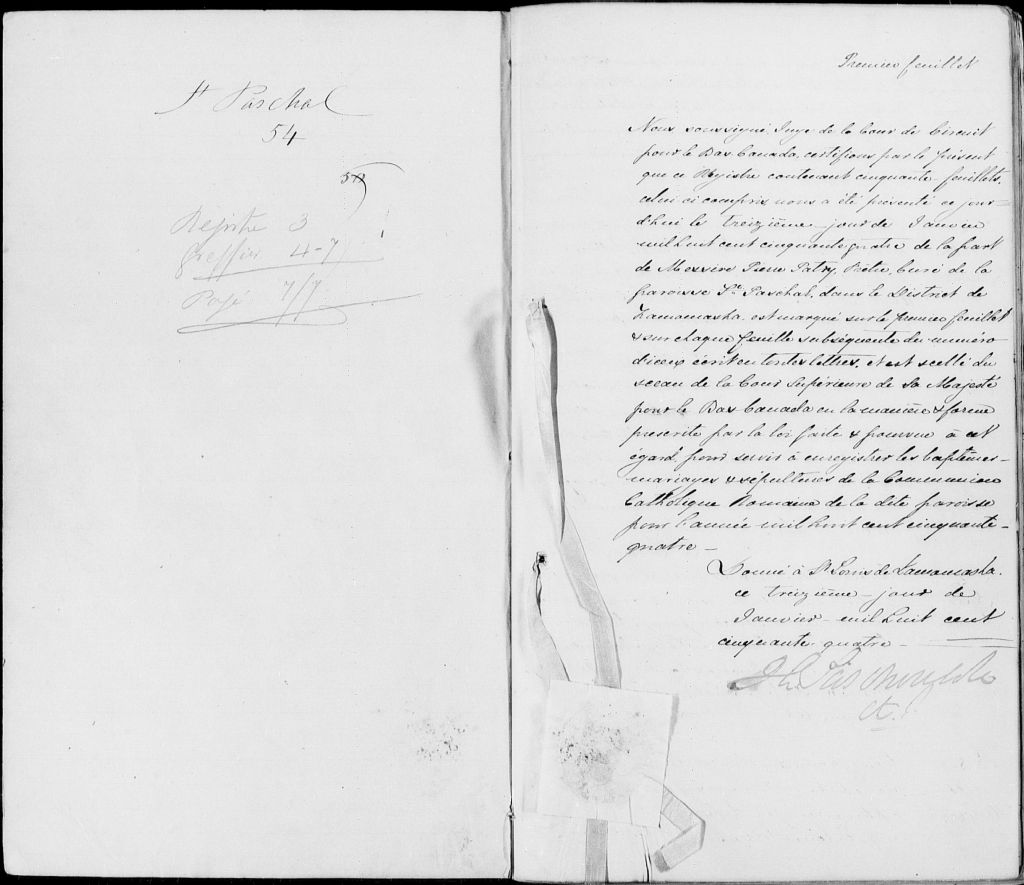 St Paschal
54
Registre 3
Greffier 4-7
Payé 7/7
Premier feuillet
Nous soussigné Juge de la Cour de Circuit
pour le Bas Canada, certifions par le présent
que ce Régistre contenant cinquante feuillets,
celui ci compris nous a été présenté ce jour-
d'hui le treizième jour de Janvier
mil huit cent cinquante quatre de la part
de Messire Pierre Patry, Prêtre, Curé de la
paroisse St. Paschal, dans le District de
Kamouraska, est marqué sur le premier feuillet
& sur chaque feuille subséquente du numéro
d'iceux écrit en toutes lettres, et est scellé du
sceau de la Cour Supérieure de Sa Majesté
pour le Bas Canada en la manière & forme
prescrite par la loi faite & pourvue à cet
égard, pour servir à enregistrer les baptêmes-
mariages & sépultures de la Communion
Catholique Romaine de la dite paroisse
pour l'année mil huit cent cinquante-
quatre —
Donné à St Louis de Kamouraska.
ce treizième - jour de
Janvier - mil huit cent
cinquante quatre —